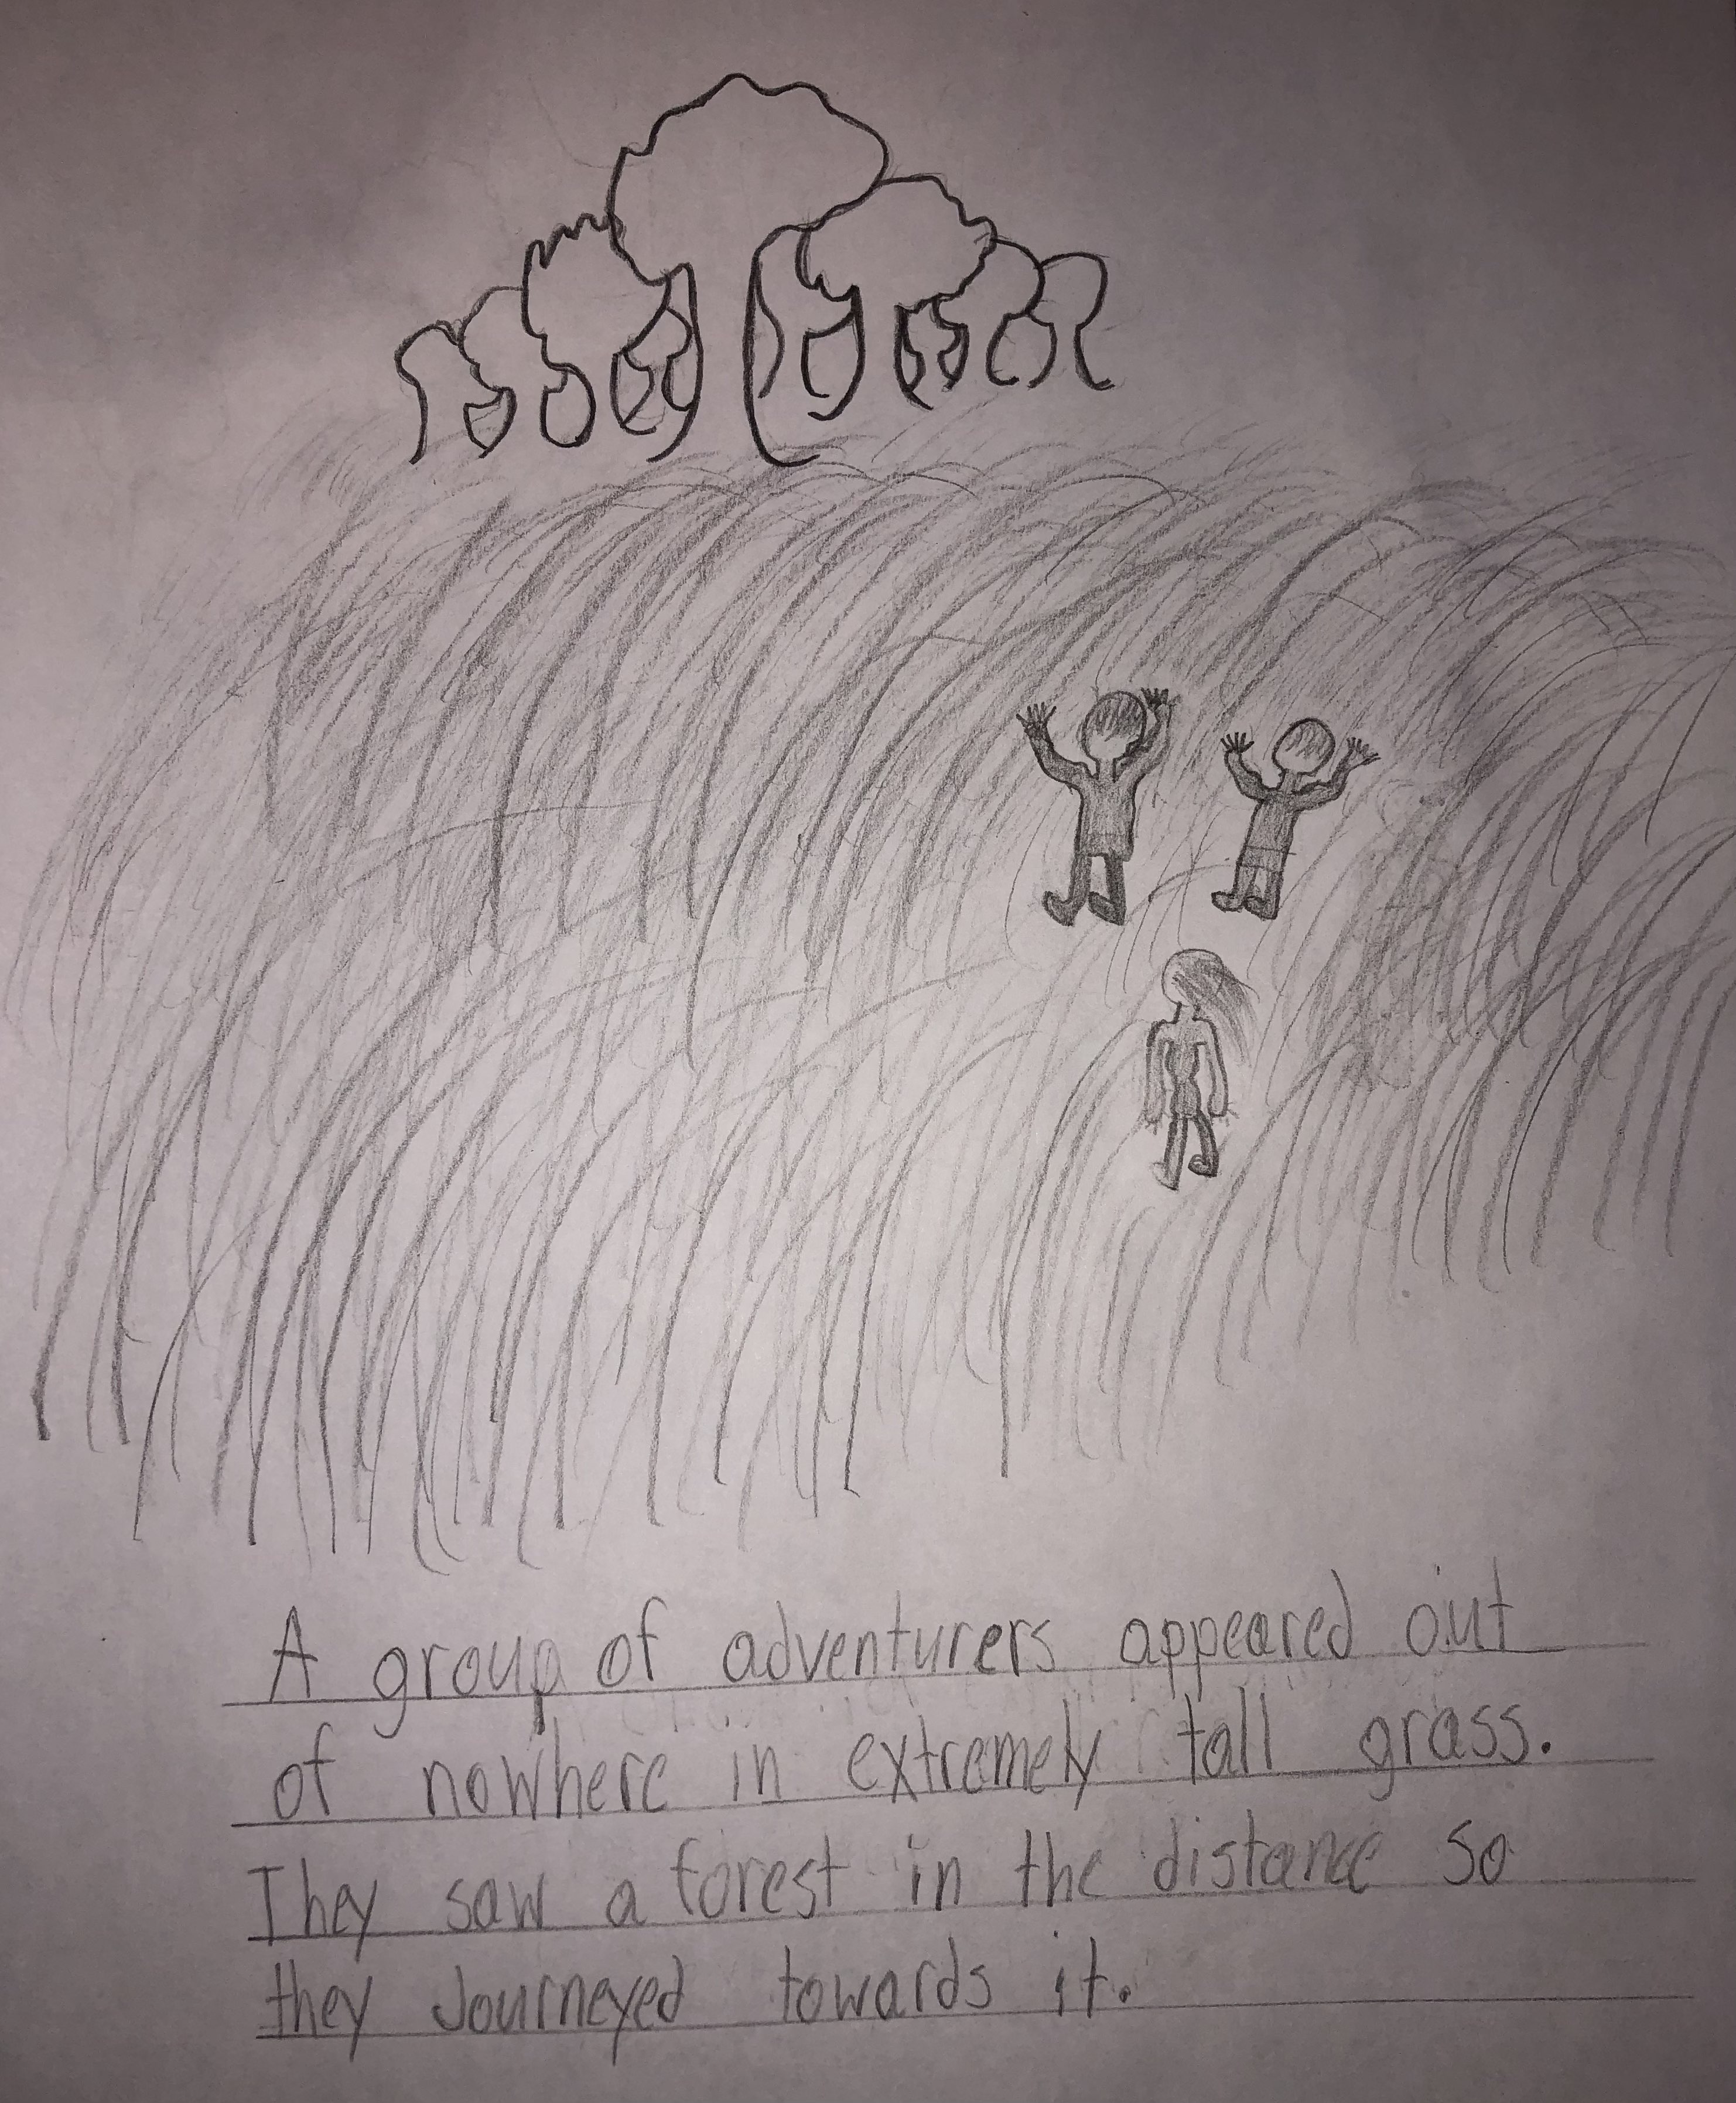 A group of adventurers appeared out
of nowhere in extremely tall grass.
They saw a forest in the distance so
they Journeyed towards it.